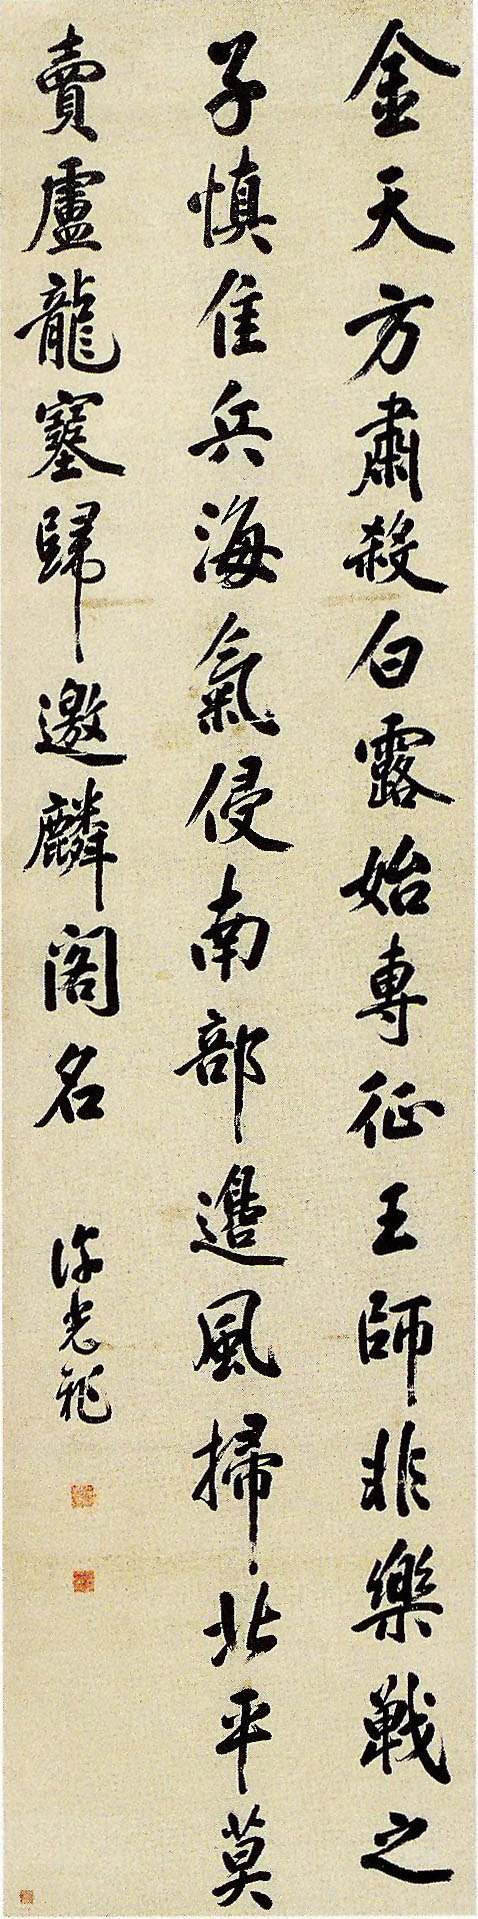 金天方肅殺白露始專征王師非樂戰之
子慎佳兵海氣侵南部邊風掃北平莫
賣盧龍塞歸邀麟閣名
許光祚